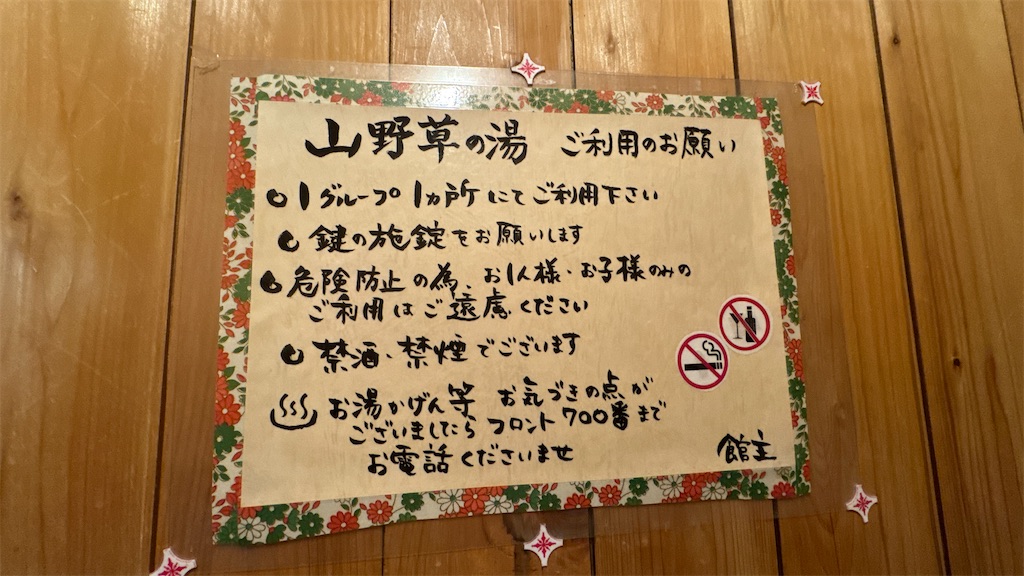 山野草の湯 ご利用のお願い
○ 1グループ 1ヵ所にてご利用下さい
○ 鍵の施錠をお願いします
○ 危険防止の為、お1人様・お子様のみの
ご利用はご遠慮ください
○ 禁酒・禁煙でございます
♨ お湯かげん等 お気づきの点が
ございましたら フロント700番まで
お電話くださいませ
館主